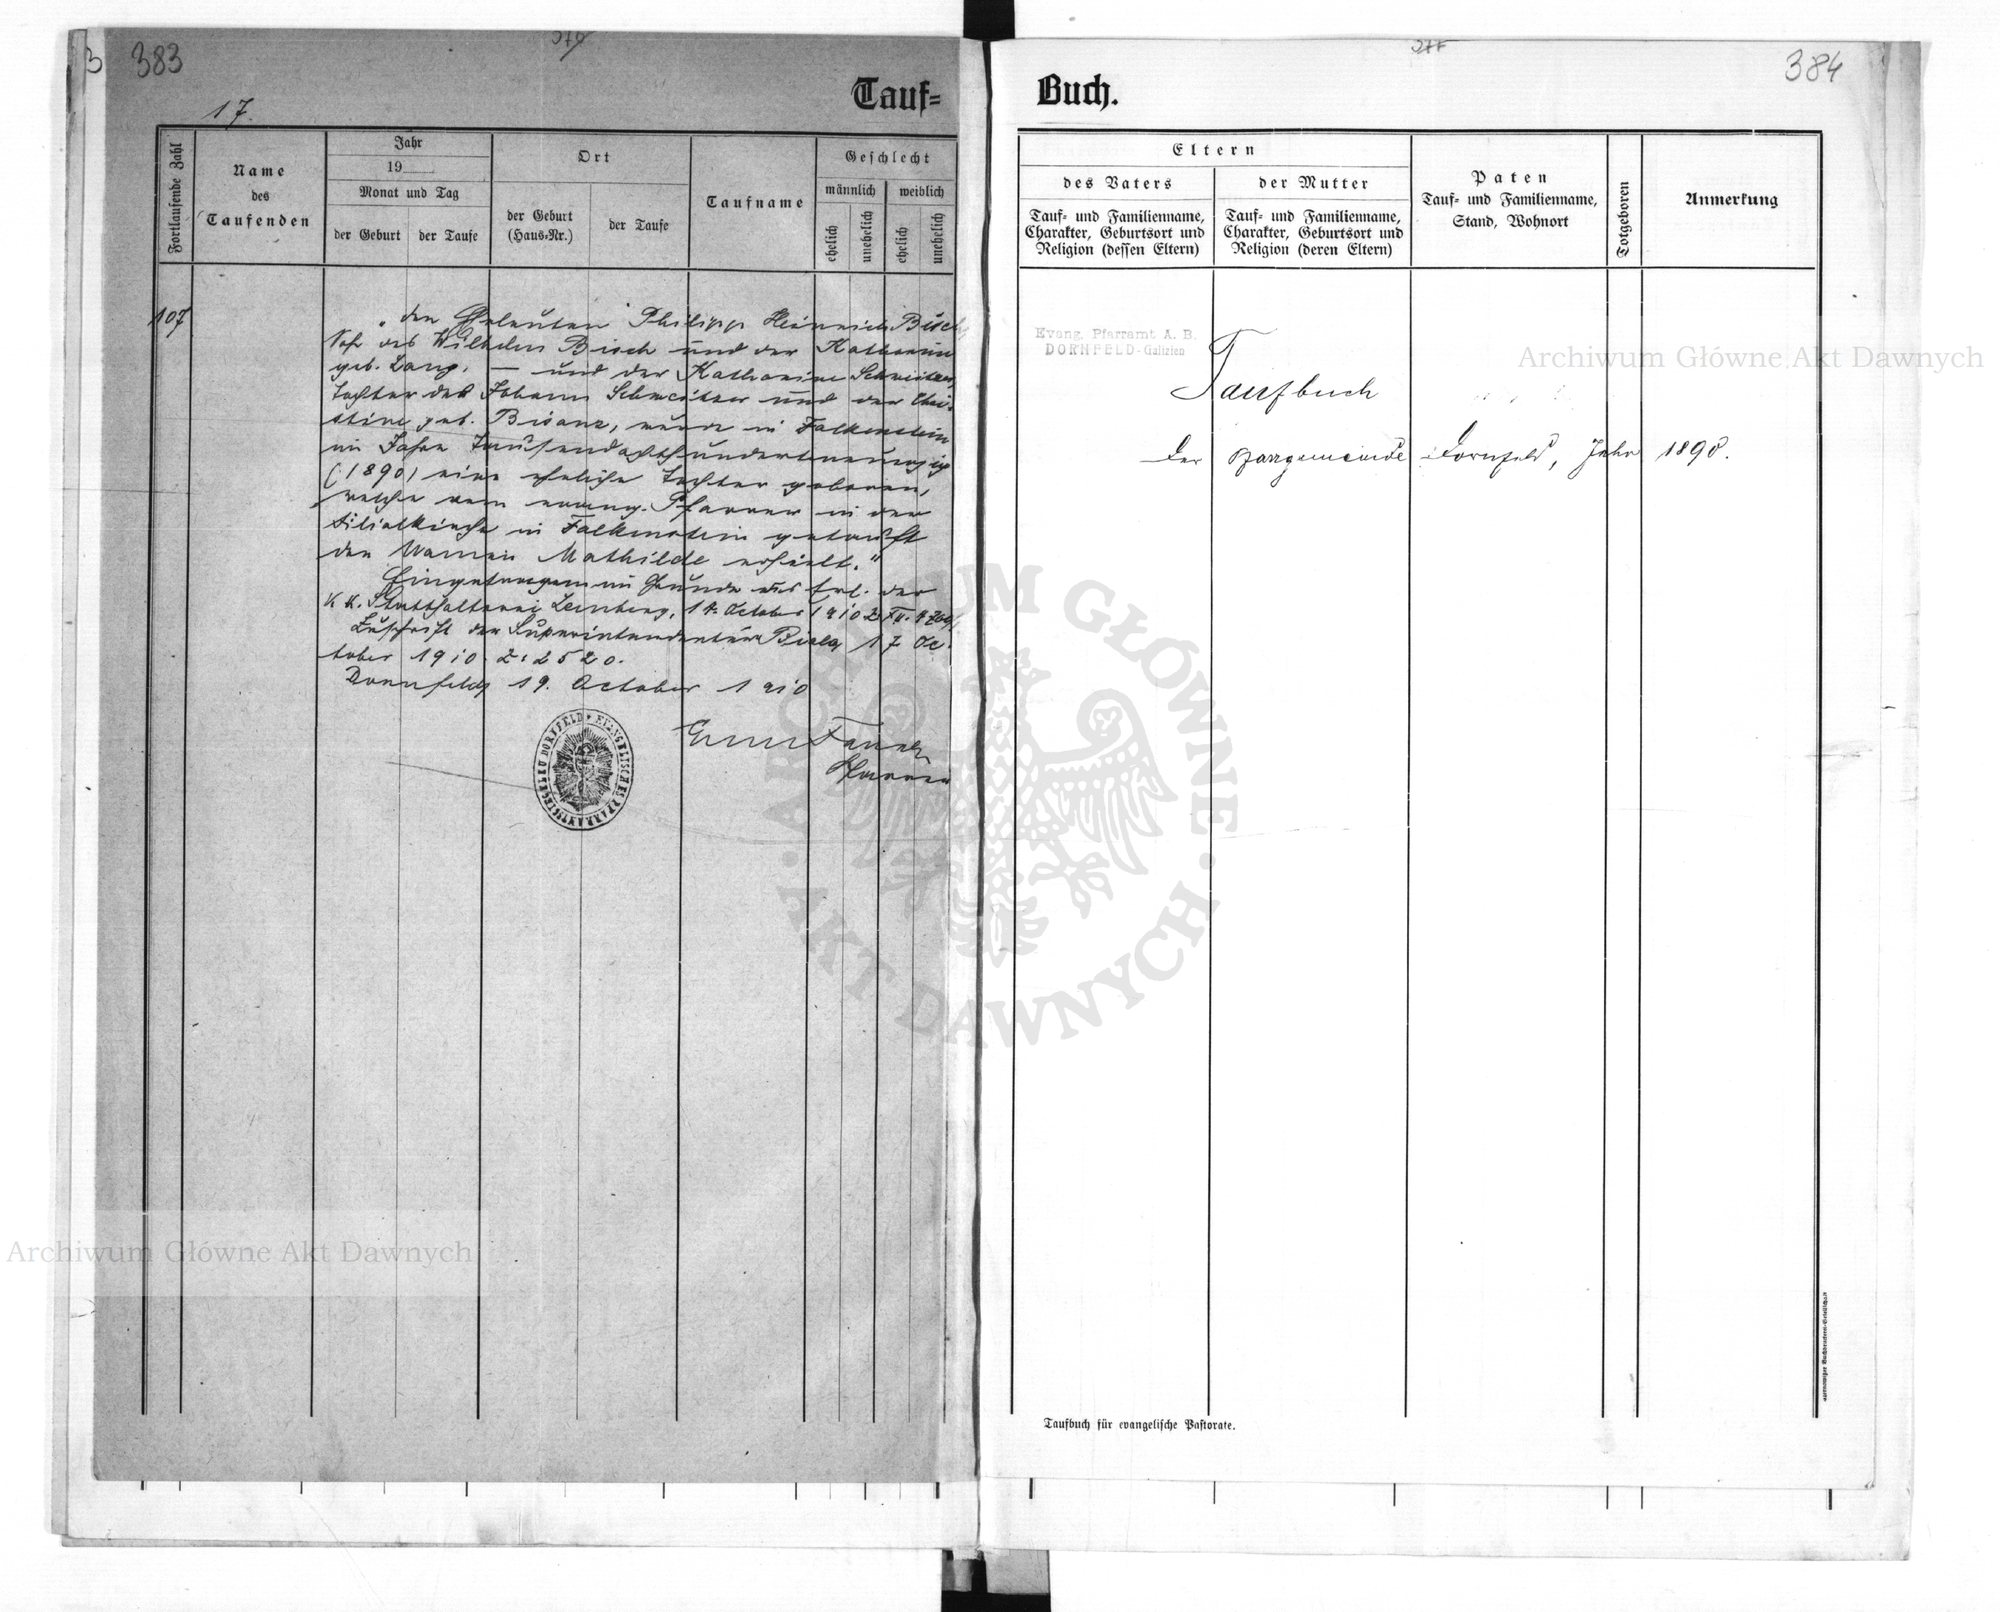 383
17.
Tauf=
Fortlaufende Zahl
Name
des
Taufenden
Jahr
19
Monat und Tag
der Geburt
der Taufe
Ort
der Geburt
(Haus=Nr.)
der Taufe
Taufname
Geschlecht
männlich
weiblich
ehelich
unehelich
ehelich
unehelich
107
„den Eheleuten Philipp Heinrich Bisch,
Sohn des Wilhelm Bisch und der Katharina
geb. Lang, — und der Katharina Schweitzer,
Tochter des Johann Schweitzer und der Chri-
stine geb. Bisanz, wurde in Falkenstein
im Jahre Tausendachthundertneunzig
(1890) eine eheliche Tochter geboren,
welche vom evang. Pfarrer in der
Filialkirche in Falkenstein getauft
den Namen Mathilde erhielt."
Eingetragen im Grunde des Erl. der
k. k. Statthalterei Lemberg, 14. October 1910 Z. XII.
Zuschrift der Superintendentur Biala 17 Oc-
tober 1910. Z: 2520.
Dornfeld, 19. October 1910
Pfarrer
EVANGELISCHES PFARRAMTSSIEGEL ZU DORNFELD
384
Buch.
Eltern
des Vaters
Tauf= und Familienname,
Charakter, Geburtsort und
Religion (dessen Eltern)
der Mutter
Tauf= und Familienname,
Charakter, Geburtsort und
Religion (deren Eltern)
Paten
Tauf= und Familienname,
Stand, Wohnort
Totgeboren
Anmerkung
Evang. Pfarramt A. B.
DORNFELD-Galizien
Taufbuch
der Pfarrgemeinde Dornfeld, Jahr 1890.
Taufbuch für evangelische Pastorate.
Archiwum Główne Akt Dawnych
Archiwum Główne Akt Dawnych
ARCHIWUM GŁÓWNE
AKT DAWNYCH